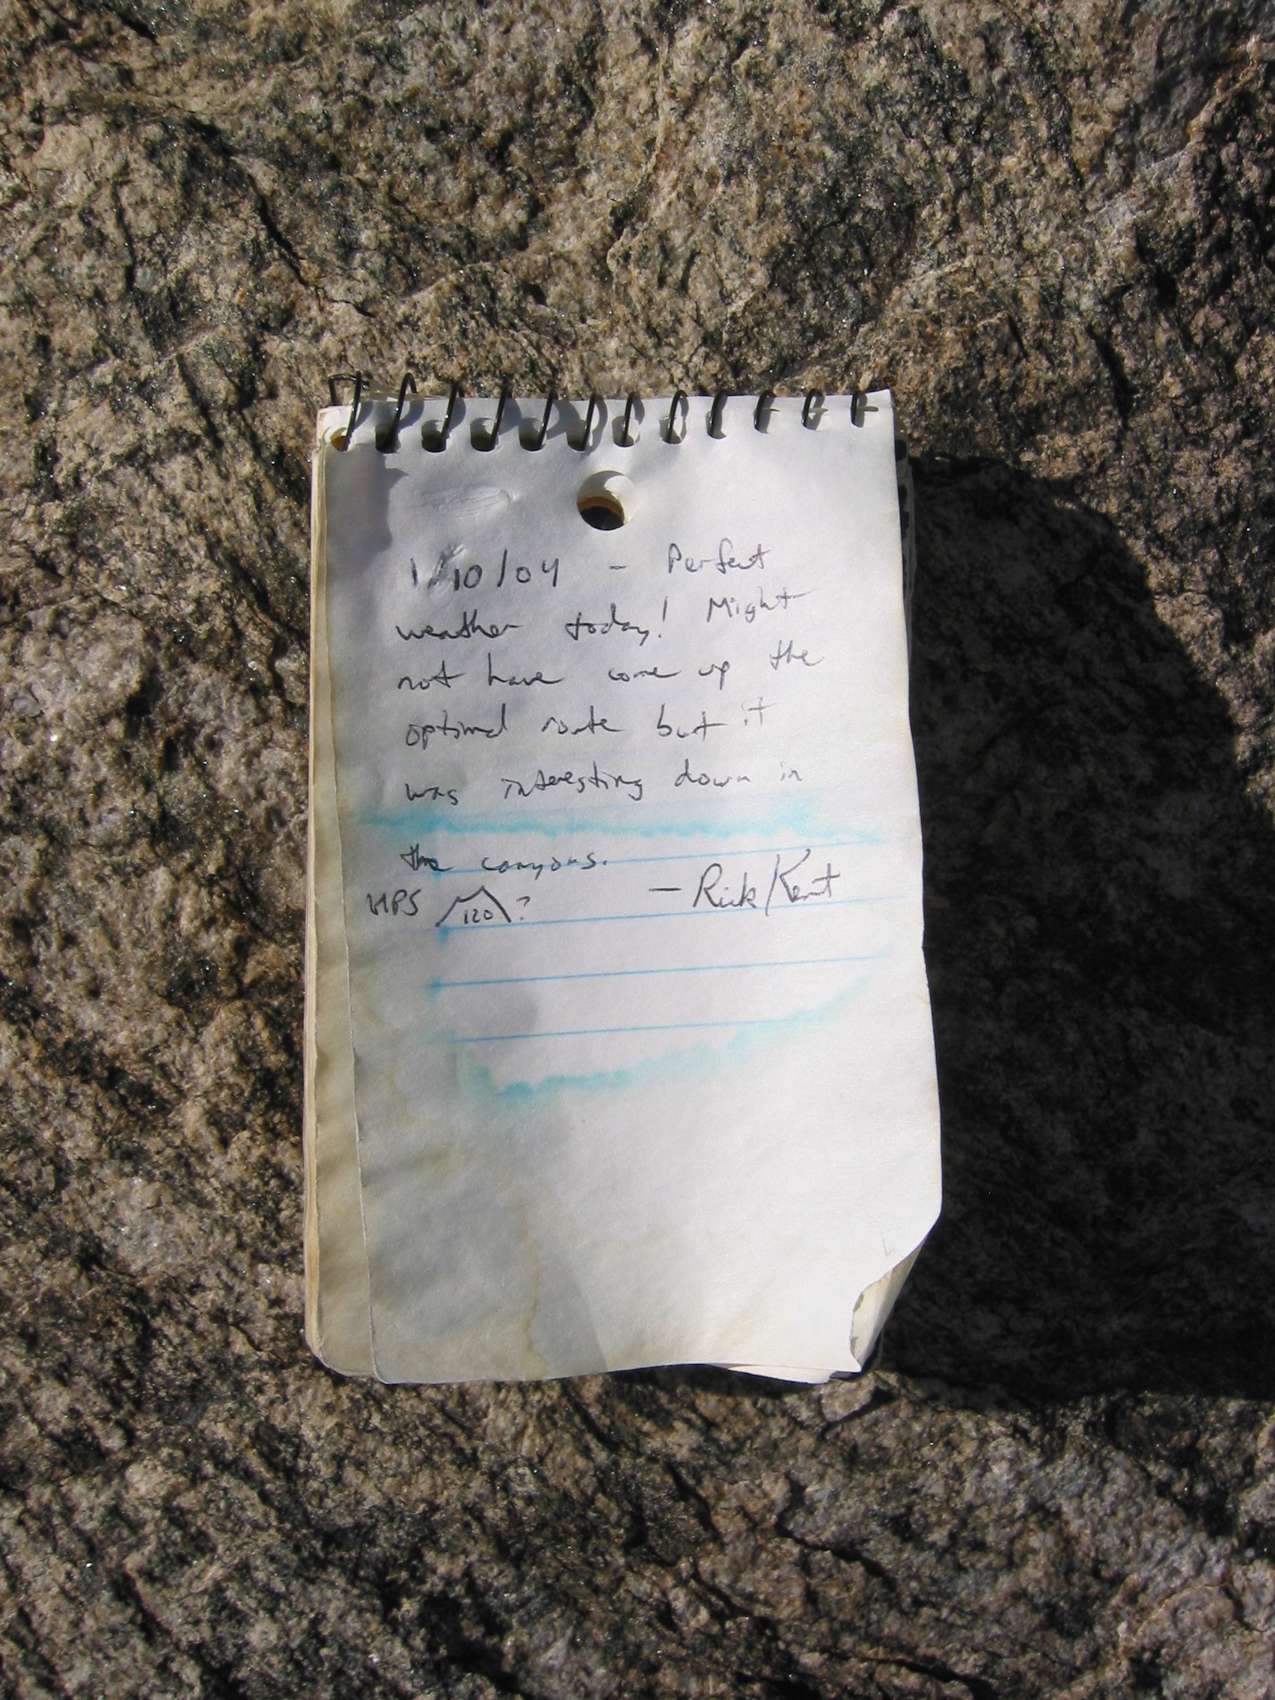 1/10/04 - Perfect
weather today! Might
not have come up the
optimal route but it
was interesting down in
the canyons.
- Rick Kent
HPS 120?